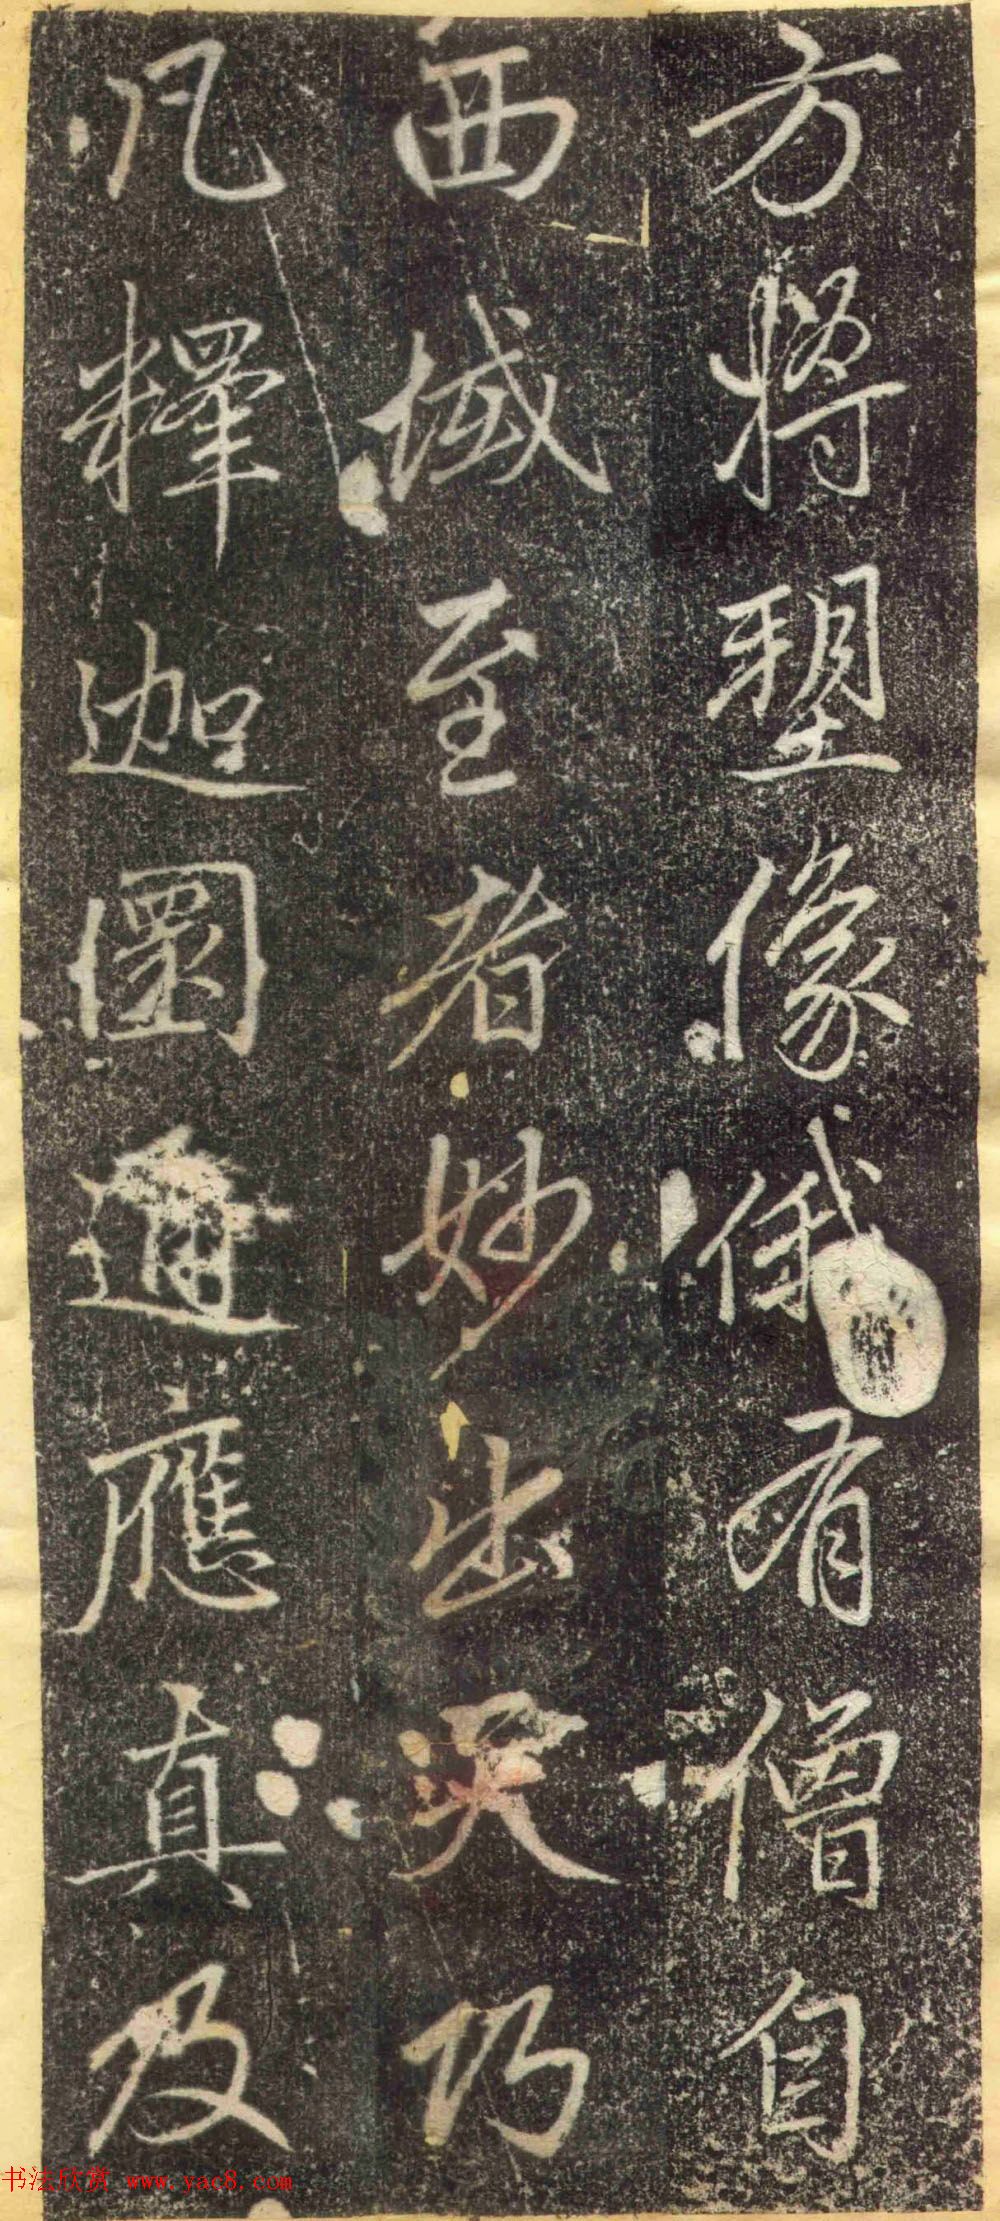 方將塑像俄有僧自
西域至者妙出天巧
凡釋迦圜通應真及
书法欣赏 www.yac8.com